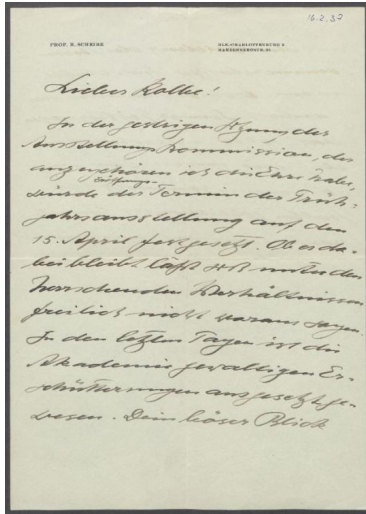 16.2.37
PROF. R. SCHEIBE
BLN.-CHARLOTTENBURG 9
Lieber Kolbe!
In der gestrigen Sitzung der
Ausstellungskommission, der
anzuhören ich die Ehre habe,
Eröffnungs-
wurde der Termin der Früh-
jahrsausstellung auf den
15. April festgesetzt. Ob es da-
bei bleibt läßt sich unter den
herrschenden Verhältnissen
freilich nicht voraus sagen.
In den letzten Tagen ist die
Akademie gewaltigen Er-
schütterungen ausgesetzt ge-
wesen. Dein böser Blick